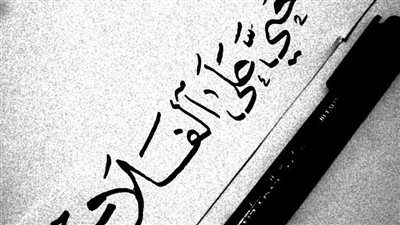 حَيَّ عَلَى ٱلْفَلَاح